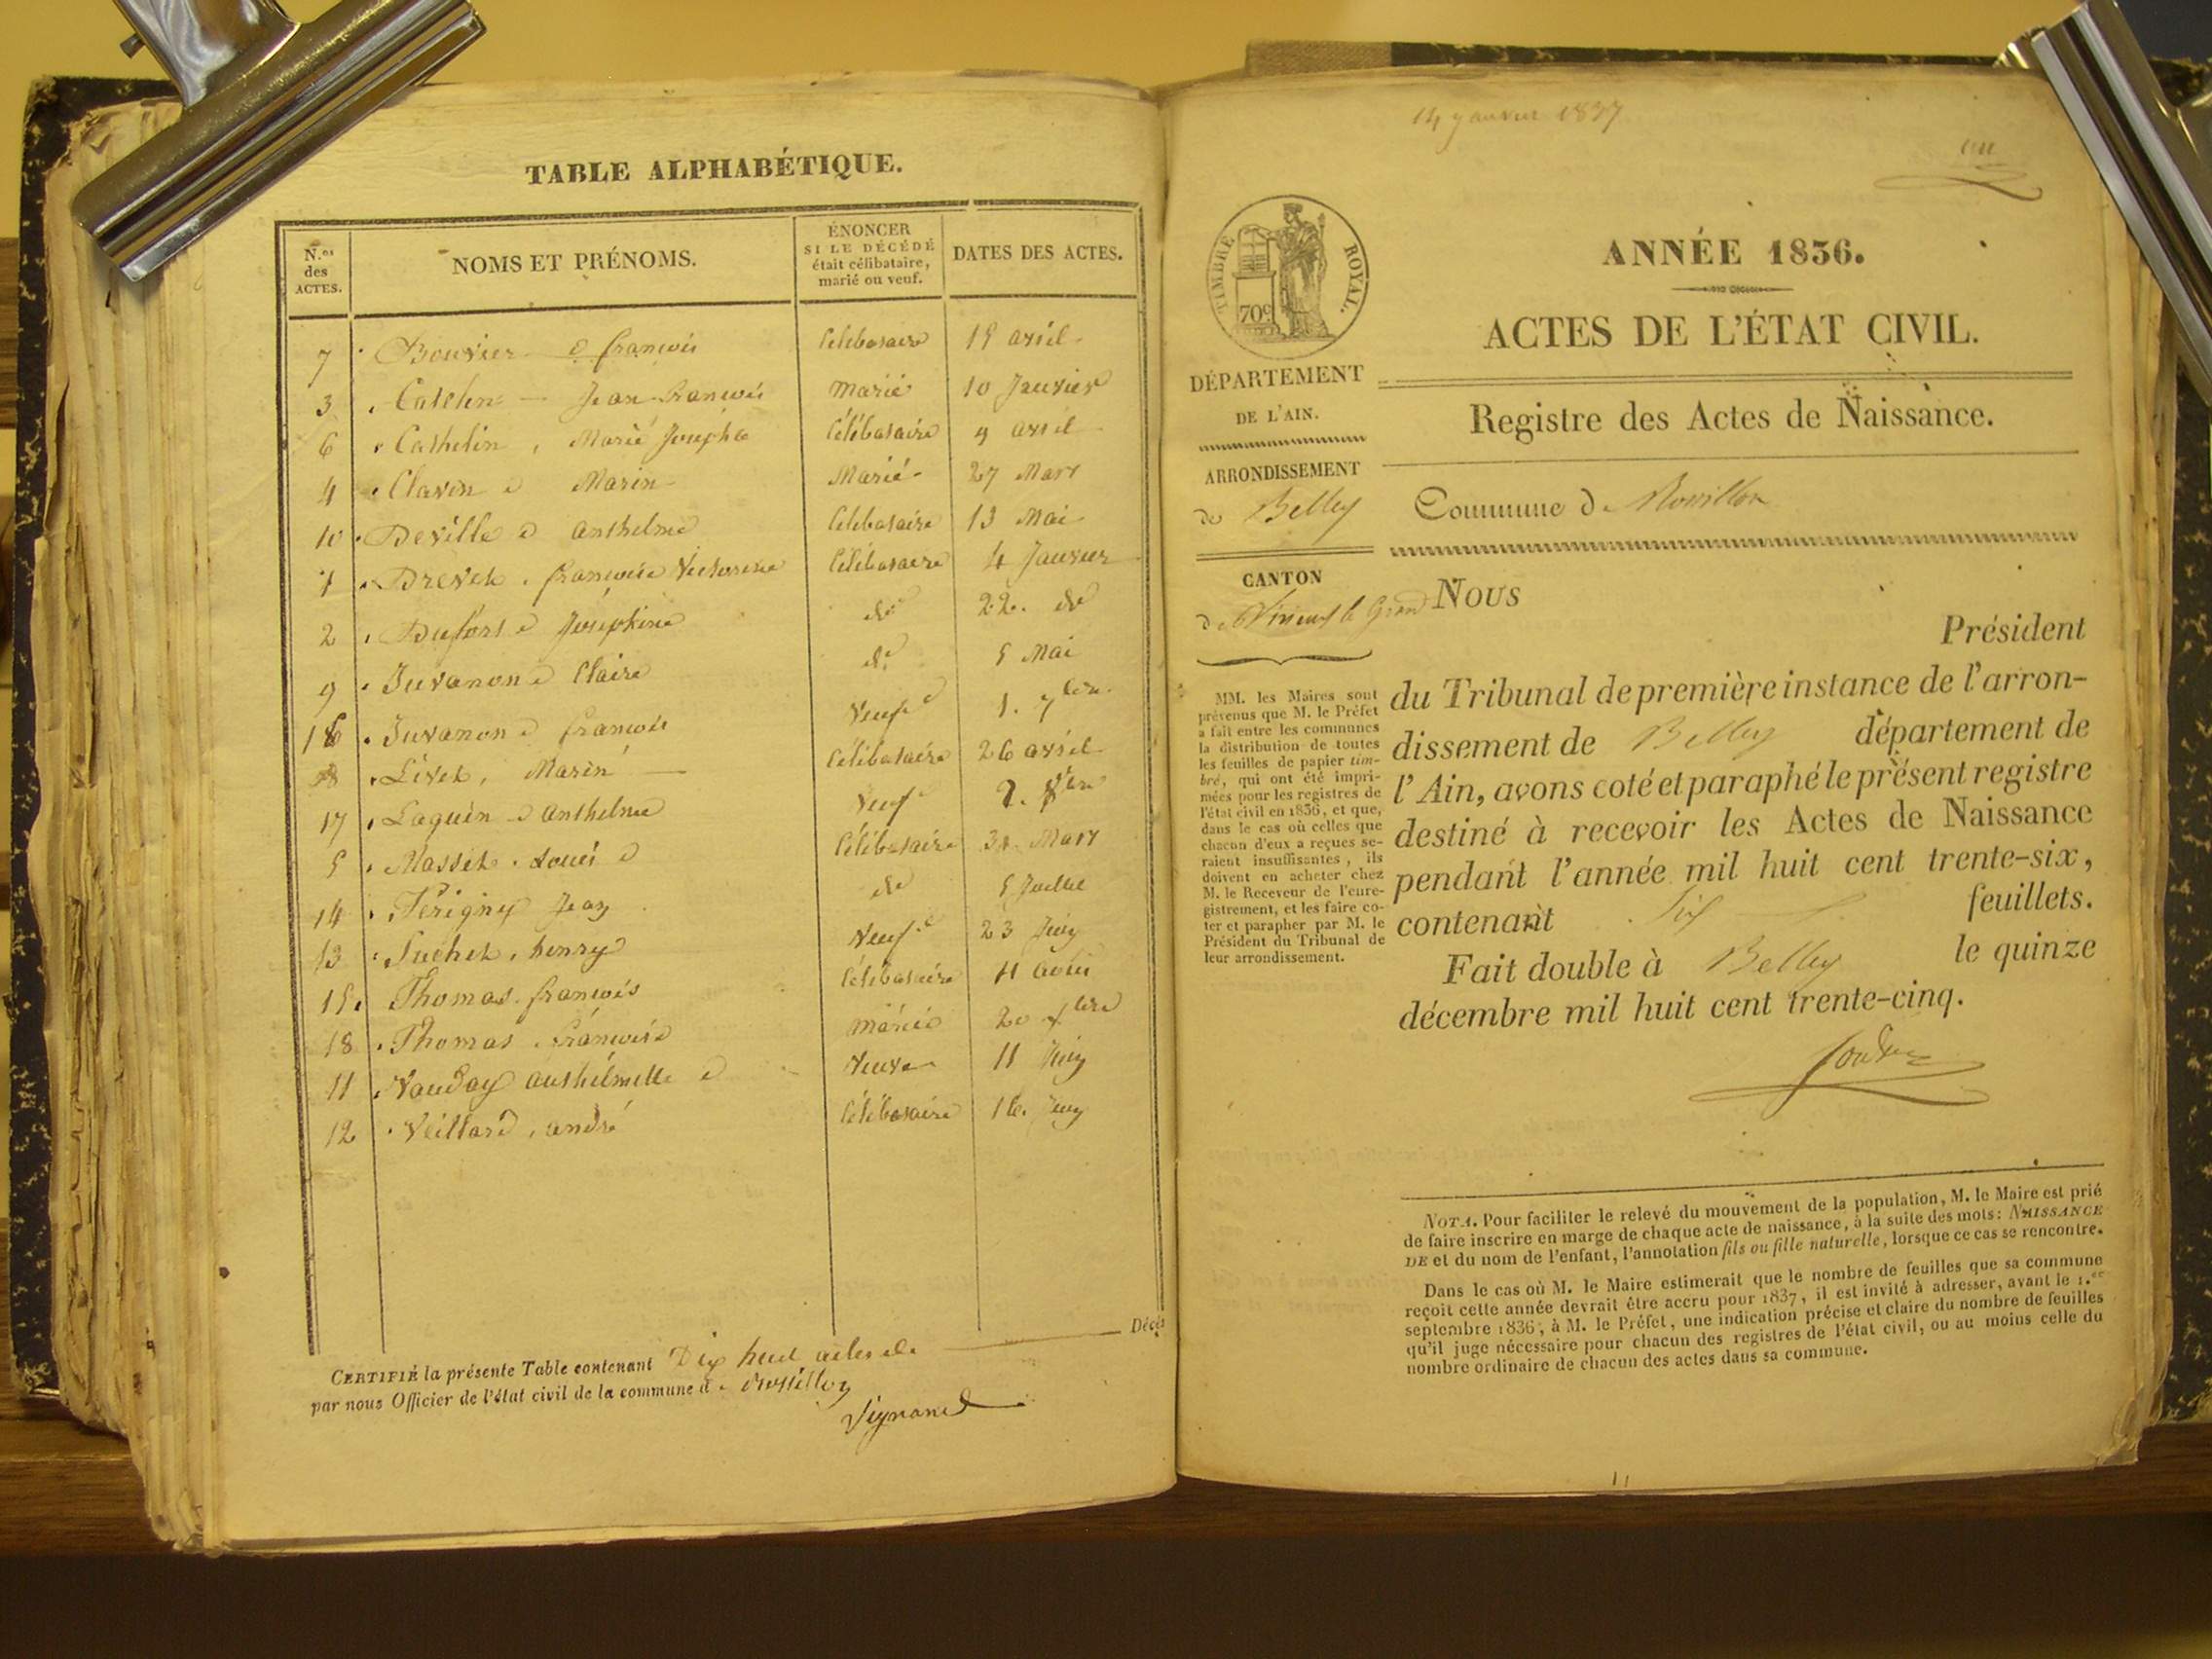 TABLE ALPHABÉTIQUE.
N.os des ACTES.
NOMS ET PRÉNOMS.
ÉNONCER SI LE DÉCÉDÉ était célibataire, marié ou veuf.
DATES DES ACTES.
7 Bouvier françois Célibataire 15 avril
3 Catelin Jean françois marié 10 Janvier
6 Cathelin, Marie Josephe Célibataire 9 avril
4 Clavin Marin Marié 27 Mars
10 Deville anthelme Célibataire 13 Mai
1 Drevet françoise Victorine Célibataire 4 Janvier
2 Dufort Josephine do 22. do
9 Juvanon Claire do 5 Mai
16 Juvanon françois Veuf 1. 7bre
8 Livet, Marin Célibataire 26 avril
17 Laguin anthelme Veuf 8bre
5 Masset Louis Célibataire 31 Mars
14 Périgny Jean do 5 Juillet
13 Suchet, henry Veuf 23 Juin
15 Thomas françois Célibataire 11 août
18 Thomas françois marié 20
11 Vauday anthelmette Veuve 11 Juin
12 Veillard, andré Célibataire 16. Juin
CERTIFIÉ la présente Table contenant Dix huit actes de Décès
par nous Officier de l'état civil de la commune de Rossillon
Vignand
14 janvier 1837
un
TIMBRE ROYAL.
70c
ANNÉE 1836.
ACTES DE L'ÉTAT CIVIL.
DÉPARTEMENT
DE L'AIN.
Registre des Actes de Naissance.
ARRONDISSEMENT
de Belley
Commune de Rossillon
CANTON
de Virieux le Grand
Nous
Président
du Tribunal de première instance de l'arron-
dissement de Belley département de
l'Ain, avons coté et paraphé le présent registre
destiné à recevoir les Actes de Naissance
pendant l'année mil huit cent trente-six,
contenant six feuillets.
Fait double à Belley le quinze
décembre mil huit cent trente-cinq.
MM. les Maires sont
prévenus que M. le Préfet
a fait entre les communes
la distribution de toutes
les feuilles de papier tim-
bré, qui ont été impri-
mées pour les registres de
l'état civil en 1836, et que,
dans le cas où celles que
chacun d'eux a reçues se-
raient insuffisantes, ils
doivent en acheter chez
M. le Receveur de l'enre-
gistrement, et les faire co-
ter et parapher par M. le
Président du Tribunal de
leur arrondissement.
NOTA. Pour faciliter le relevé du mouvement de la population, M. le Maire est prié
de faire inscrire en marge de chaque acte de naissance, à la suite des mots: NAISSANCE
DE et du nom de l'enfant, l'annotation fils ou fille naturelle, lorsque ce cas se rencontre.
Dans le cas où M. le Maire estimerait que le nombre de feuilles que sa commune
reçoit cette année devrait être accru pour 1837, il est invité à adresser, avant le 1.er
septembre 1836, à M. le Préfet, une indication précise et claire du nombre de feuilles
qu'il juge nécessaire pour chacun des registres de l'état civil, ou au moins celle du
nombre ordinaire de chacun des actes dans sa commune.